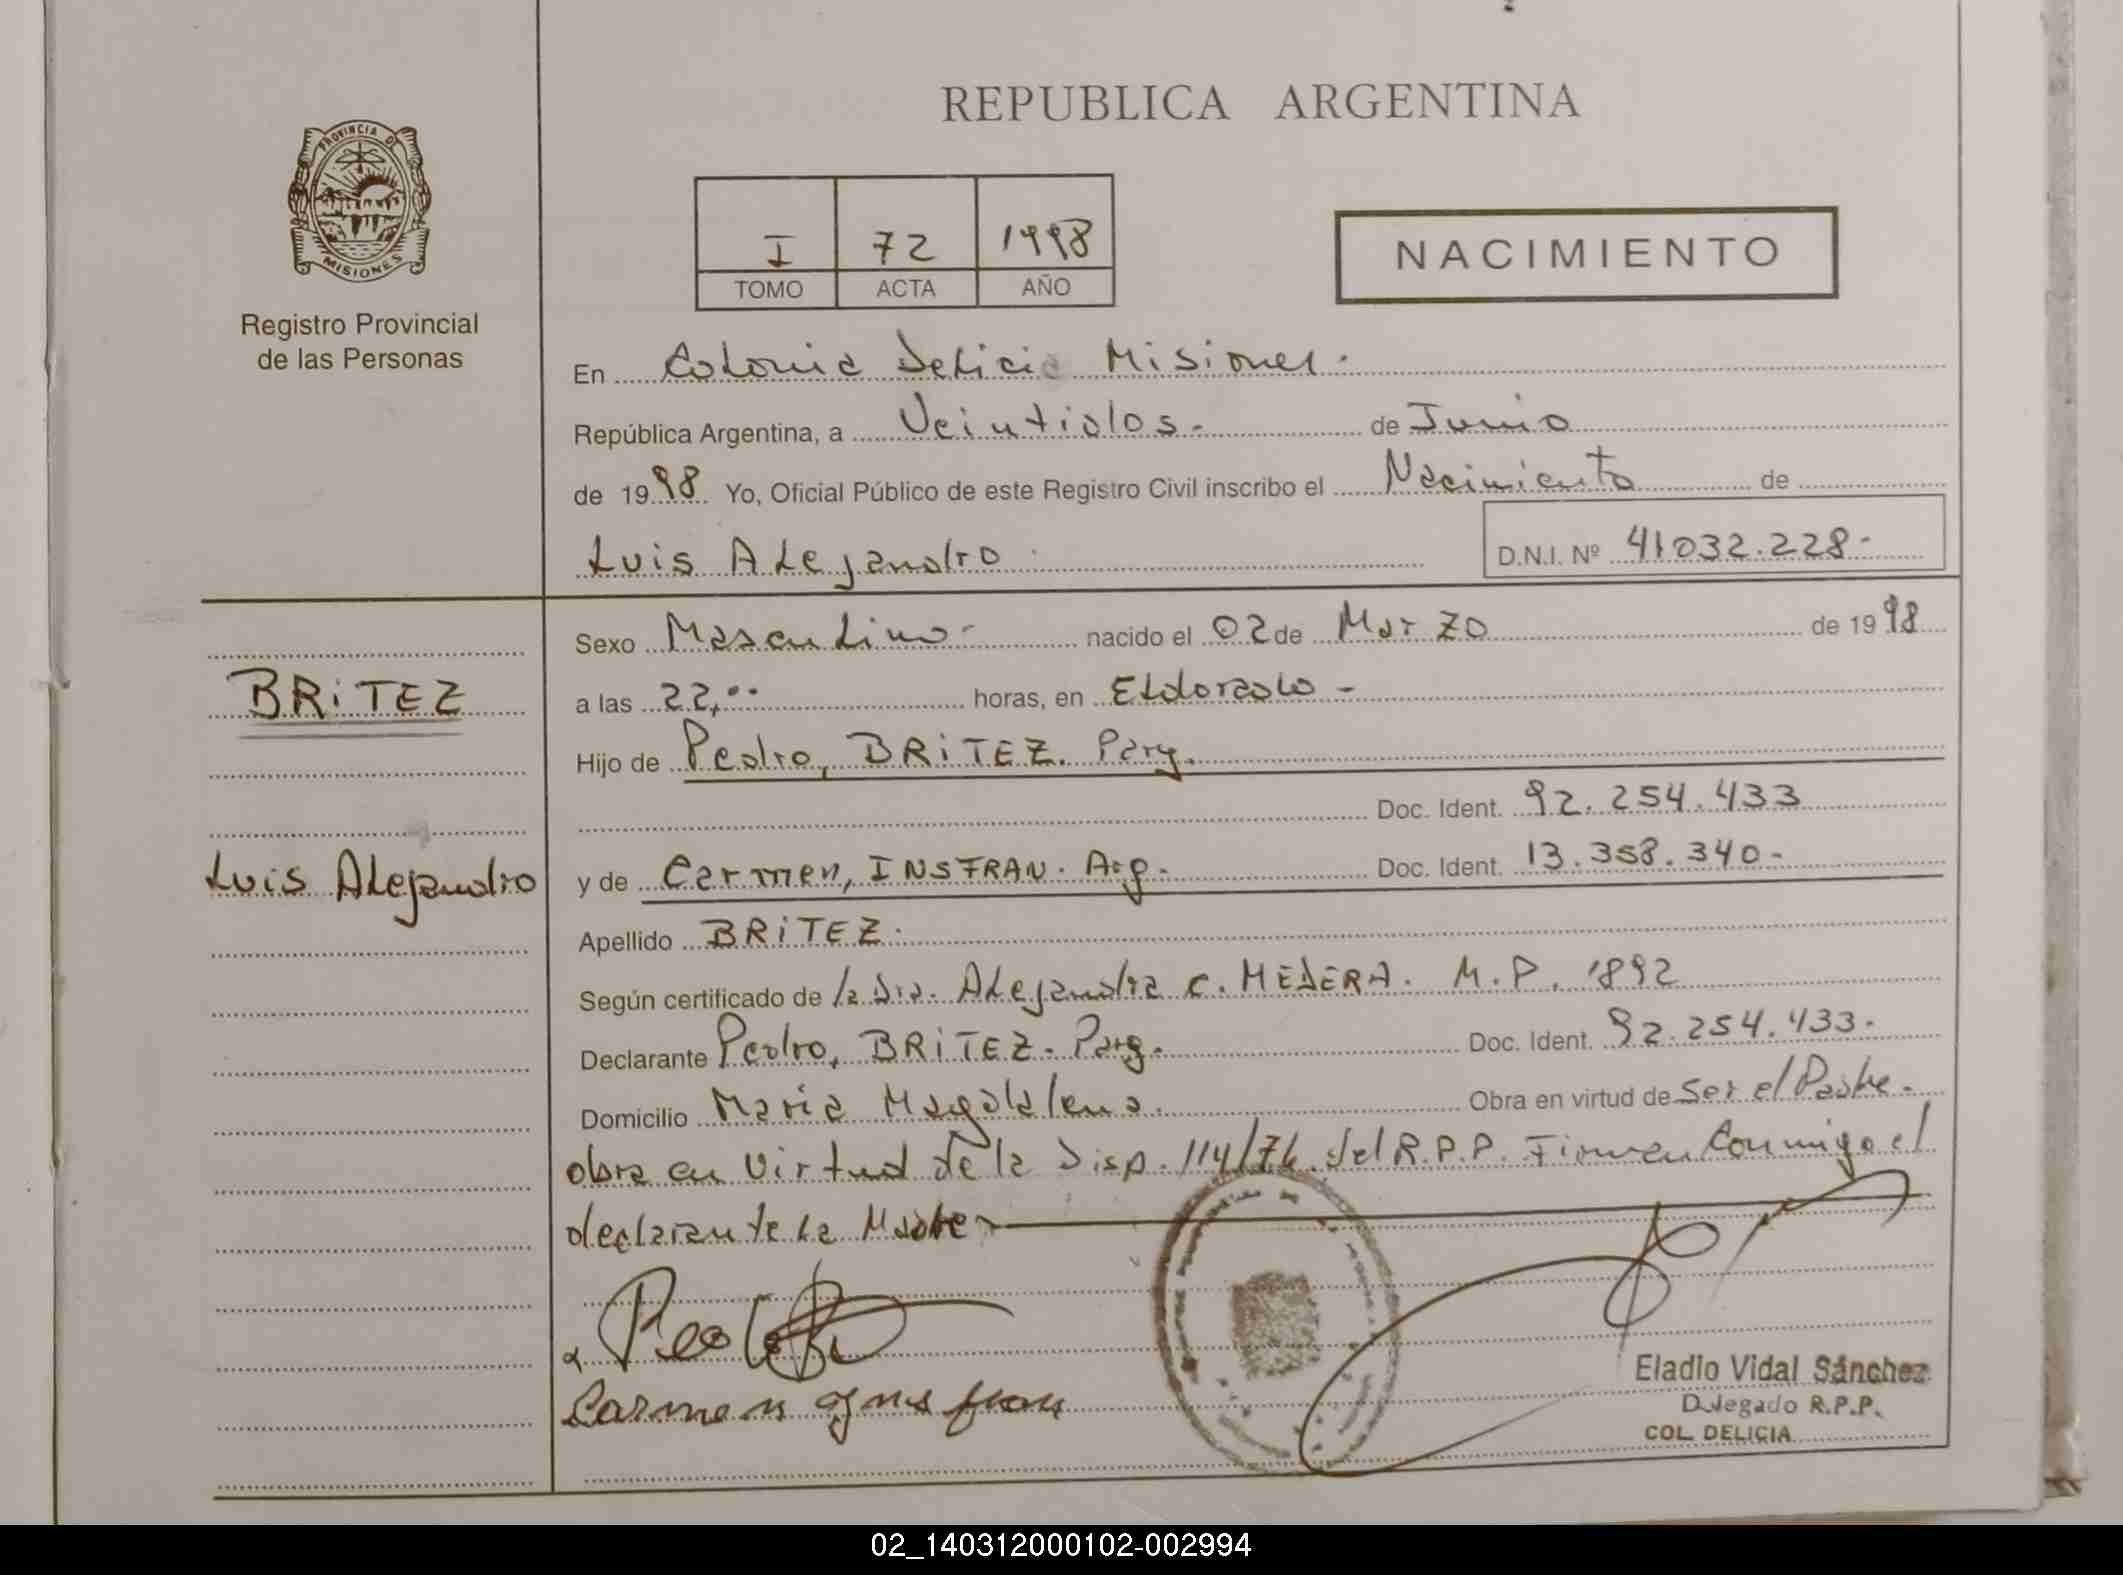 REPUBLICA ARGENTINA
PROVINCIA DE
MISIONES
Registro Provincial
de las Personas
I 72 1998
TOMO ACTA AÑO
NACIMIENTO
En Colonia Delicia Misiones.
República Argentina, a Veintidos. de Junio
de 1998 Yo, Oficial Público de este Registro Civil inscribo el Nacimiento de
Luis Alejandro D.N.I. Nº 41032.228.
Sexo Masculino nacido el 02 de Marzo de 1998
BRITEZ
a las 22,00 horas, en Eldorado -
Hijo de Pedro, BRITEZ. Parg.
Doc. Ident. 92.254.433
Luis Alejandro
y de Carmen, INSFRAN. Arg. Doc. Ident. 13.358.340.
Apellido BRITEZ.
Según certificado de la Dra. Alejandra C. MEDERA. M.P. 1892
Declarante Pedro, BRITEZ. Parg. Doc. Ident. 92.254.433.
Domicilio Maria Magdalena. Obra en virtud de Ser el Padre.
obra en virtud de la Disp. 114/76 del R.P.P. Firman Conmigo el
declarante la Madre
Carmen Ynsfran
Eladio Vidal Sánchez
Delegado R.P.P.
COL. DELICIA
02_140312000102-002994